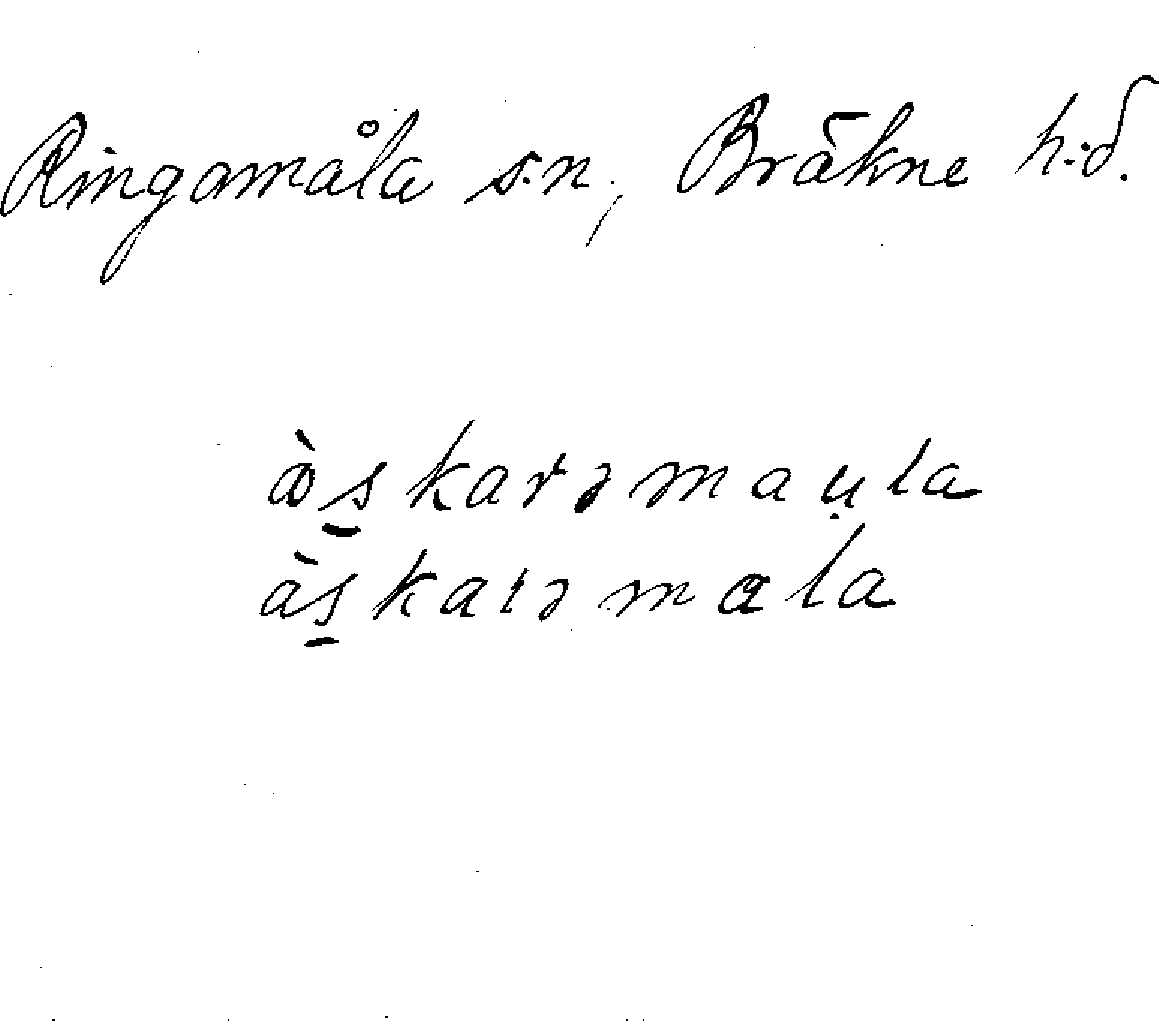 Ringamåla s:n, Bräkne h:d.
ὰs̱karəmaụla
às̱karəmala